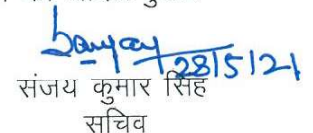 Sanjay 28/5/21
संजय कुमार सिंह
सचिव